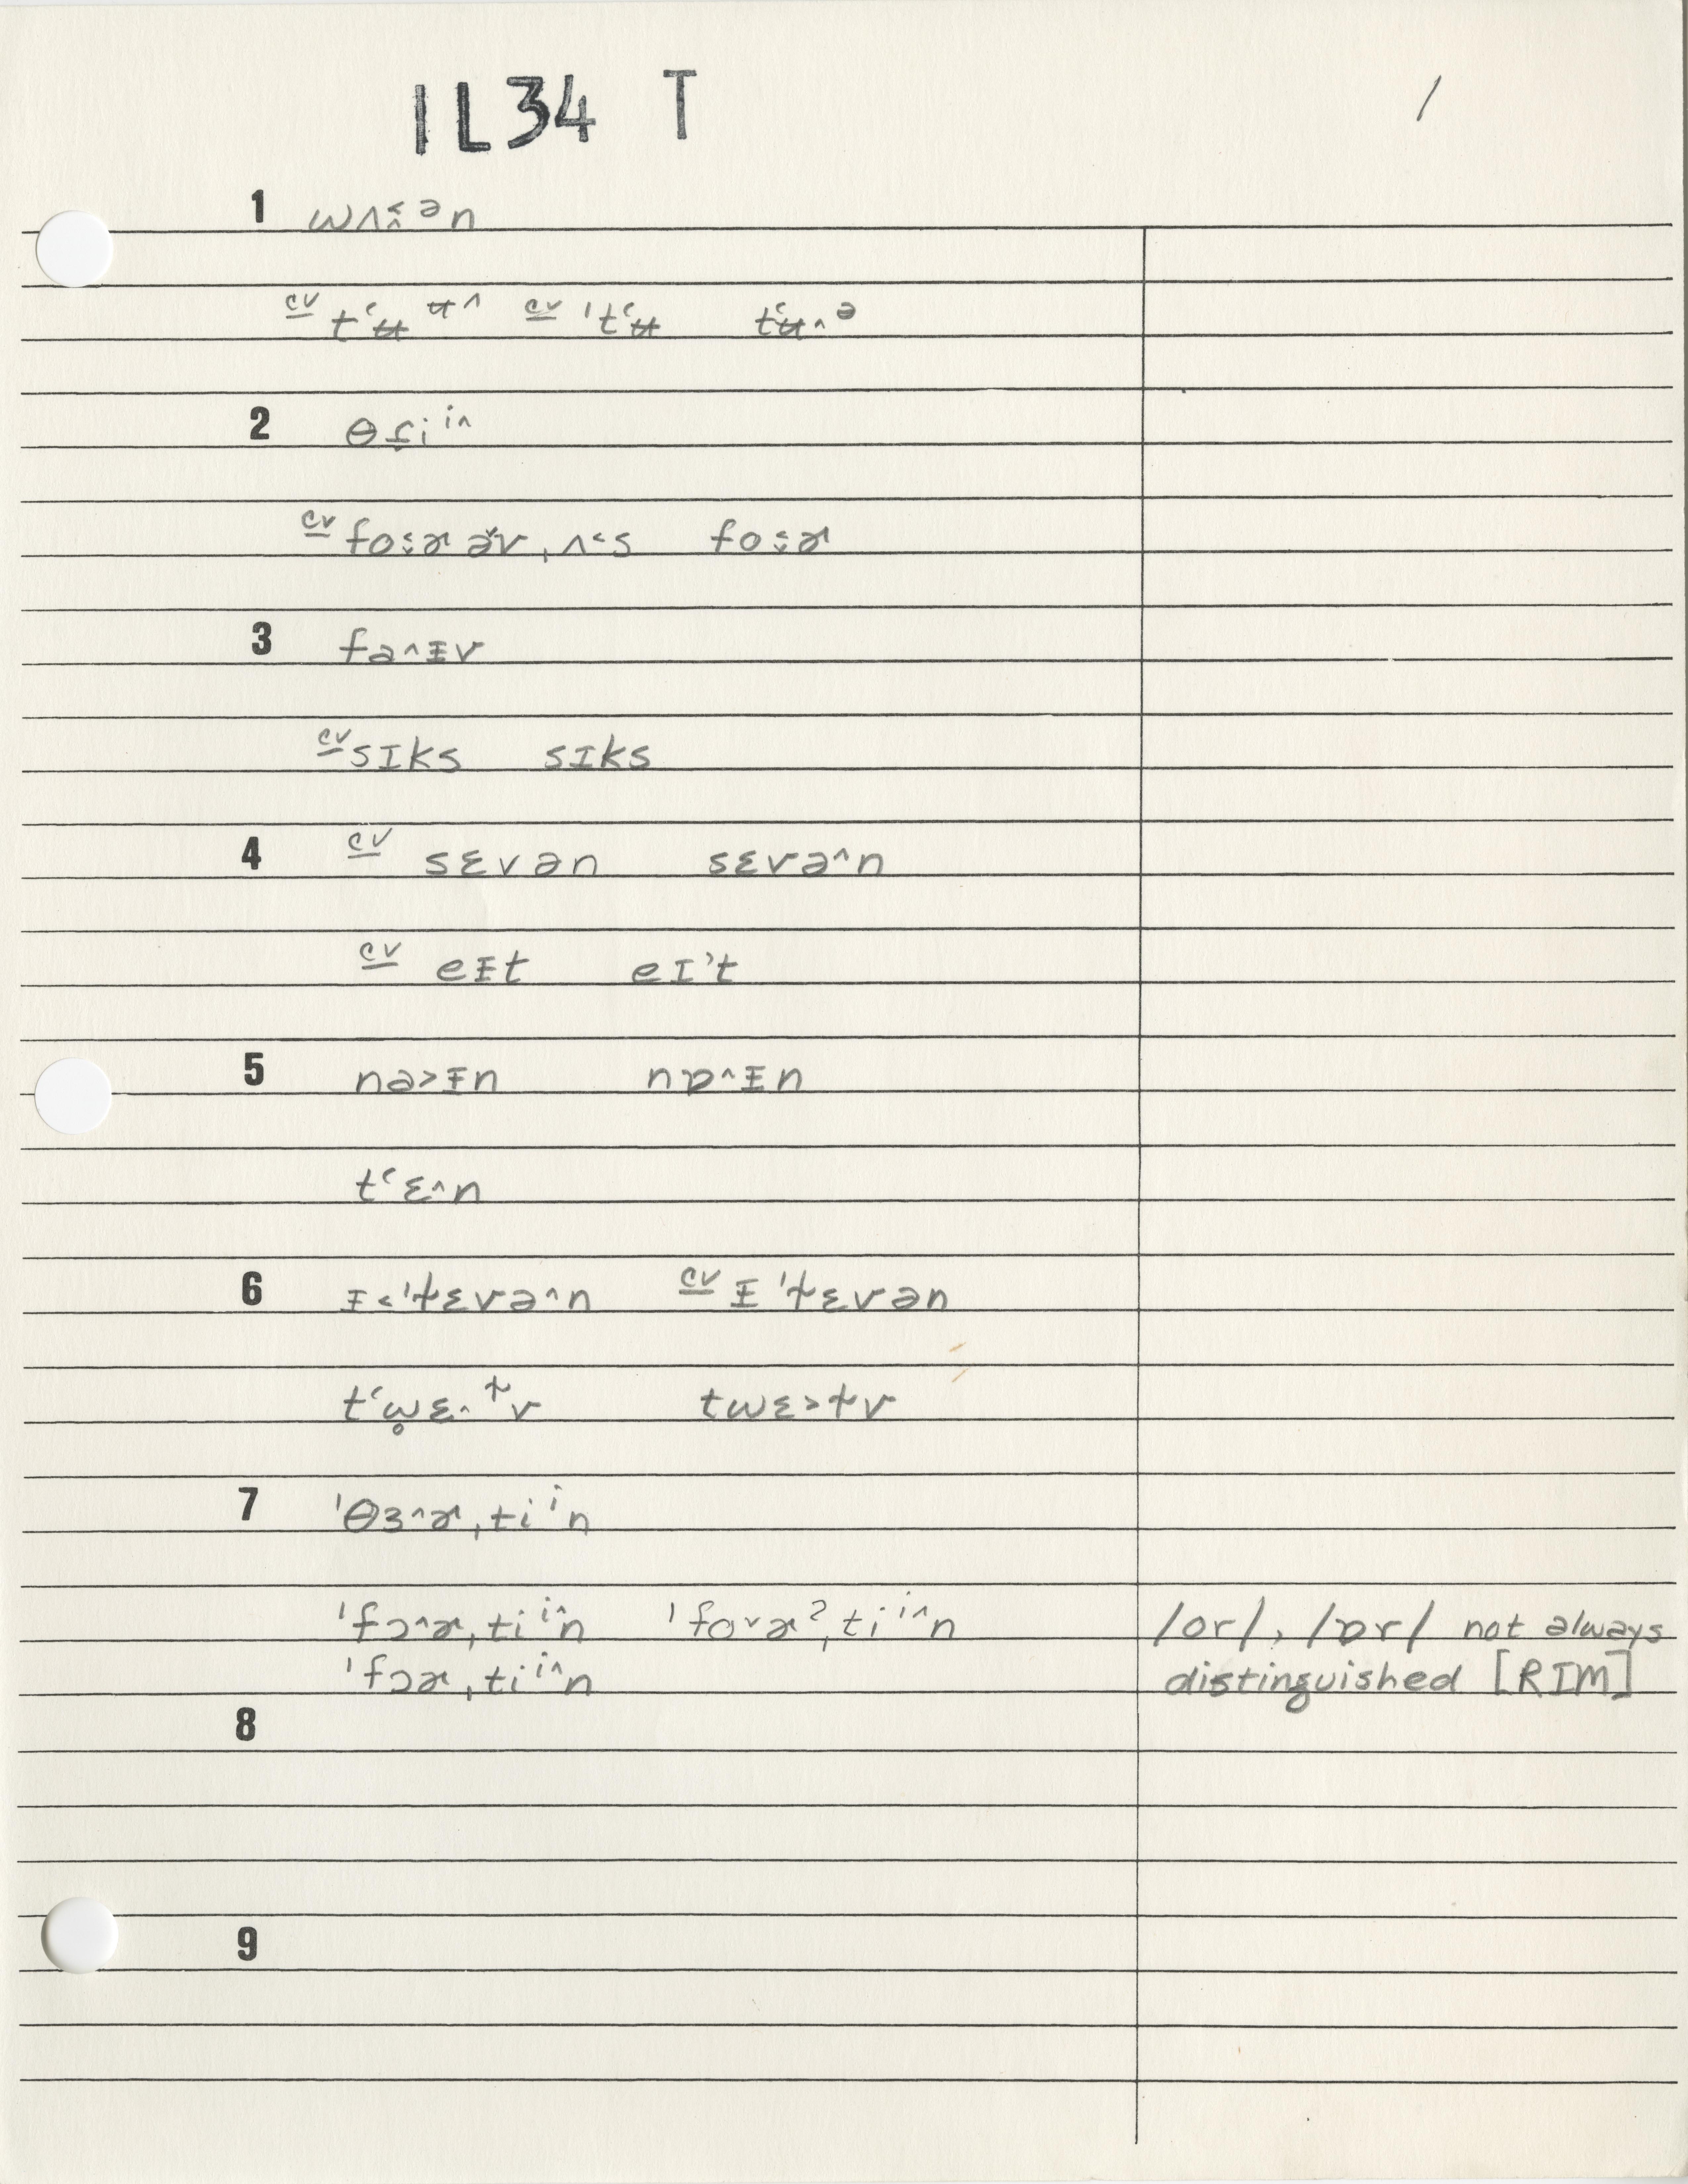 IL34 T /
1 wʌ˂̬ən
c̲v̲ tʻʉ ʉ^ c̲v̲ ˈtʻʉ tʻʉ^ə
2 θɾ̬iⁱ^
c̲v̲ fo˂̬ɚ ə̌v ˌʌ˂s fo˂̬ɚ
3 fa^ɪ̵v
c̲v̲ sɪks sɪks
4 c̲v̲ sɛvən sɛvə^n
c̲v̲ eɪ̵t eɪʼt
5 na>ɪ̵n nɒ^ɪ̵n
tʻɛ^n
6 ɪ̵<ˈɫɛvə^n c̲v̲ ɪ̵ˈɫɛvən
tʻw̥ɛ^ɫv twɛ>ɫv
7 ˈθɜ^ɚˌtiⁱn
ˈfɔ^ɚˌtiⁱ^n ˈfo˅ɚˀˌtiⁱ^n /or/, /ɒr/ not always
ˈfɔɚˌtiⁱ^n distinguished [RIM]
8
9